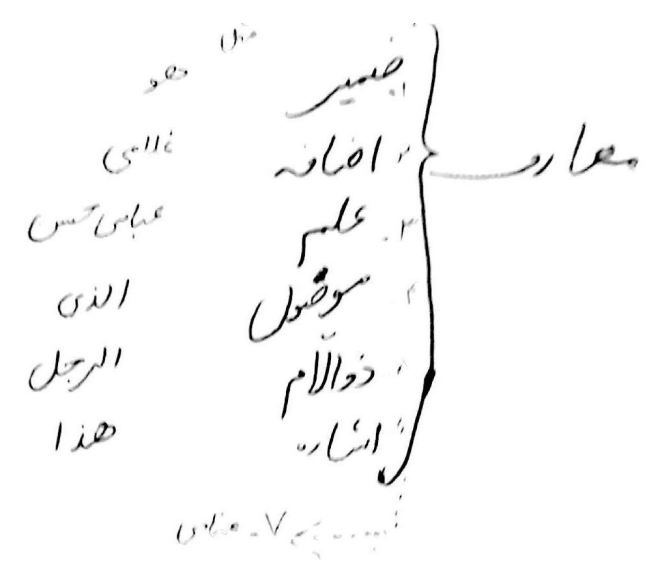 مثل
ضمیر هو
معارف
۲ اضافه غلامی
۳. علم عباس حسن
۴ موصول الذی
ذوالّام الرجل
اشاره هذا
۷- منادی